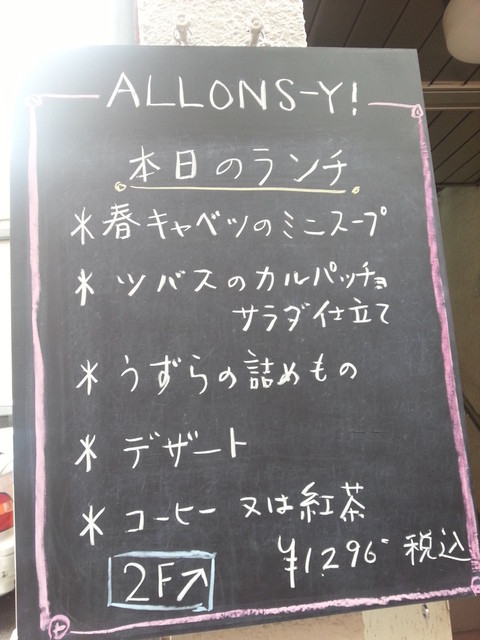 ALLONS-Y!
本日のランチ
*春キャベツのミニスープ
*ツバスのカルパッチョ
サラダ仕立て
*うずらの詰めもの
*デザート
*コーヒー又は紅茶
¥1,296- 税込
2F↗